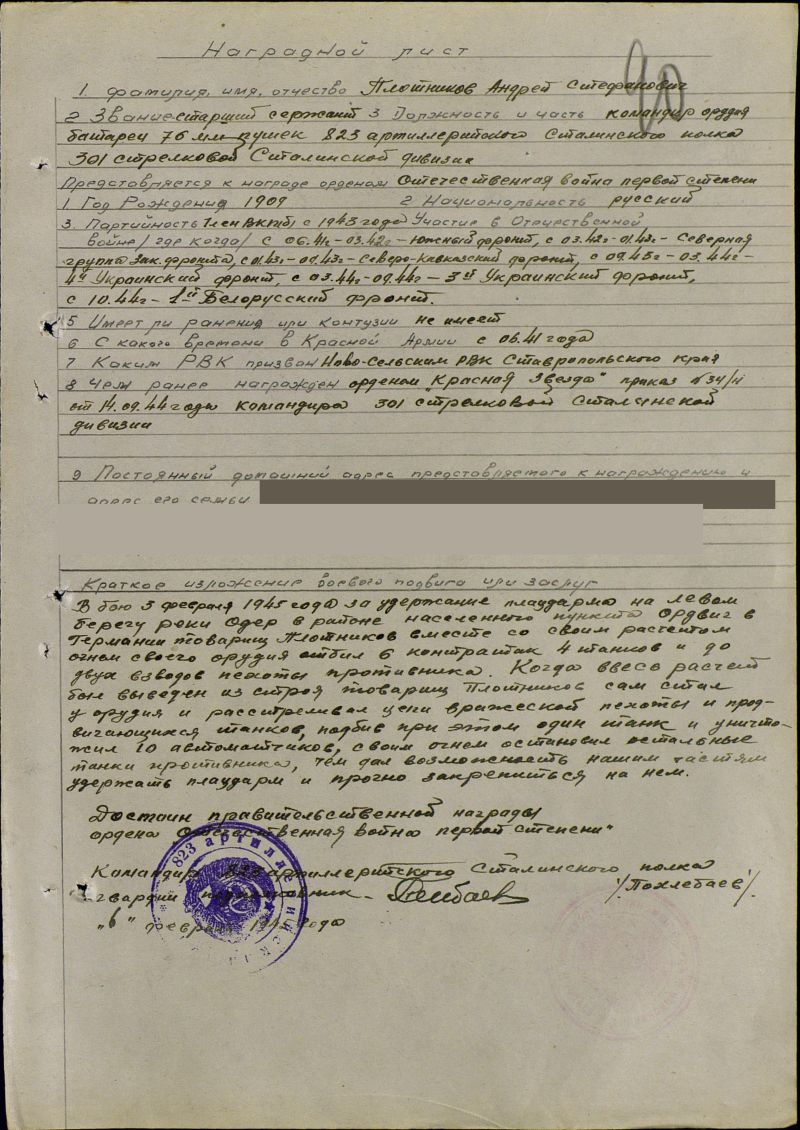 Наградной лист
1. Фамилия, имя, отчество Плотников Андрей Стефанович
2 Звание старший сержант 3 Должность и часть командир орудия
батареи 76 мм пушек 823 артиллерийского Сталинского полка
301 стрелковой Сталинской дивизии
Представляется к награде орденом Отечественная война первой степени
1 Год Рождения 1909 2 Национальность русский
3. Партийность Член ВКП(б) с 1943 года Участие в Отечественной
войне/где когда/ с 06.41г-03.42г-Южный фронт, с 03.42г-01.43г-Северная
группа Зак.фронта, с 01.43г-09.43г-Северо-Кавказский фронт, с 09.43г-03.44г-
4й Украинский фронт, с 03.44г-09.44г-3й Украинский фронт,
с 10.44г-1й Белорусский фронт.
5 Имеет ли ранения или контузии не имеет
6 С какого времени в Красной Армии с 06.41 года
7 Каким РВК призван Ново-Сельским РВК Ставропольского края
8 Чем ранее награжден орденом "Красная Звезда" приказ №34/н
от 14.09.44 года командира 301 стрелковой Сталинской
дивизии
9 Постоянный домашний адрес представляемого к награждению и
адрес его семьи
Краткое изложение боевого подвига или заслуг
В бою 5 февраля 1945 года за удержание плацдарма на левом
берегу реки Одер в районе населенного пункта Ордвиг в
Германии товарищ Плотников вместе со своим расчетом
огнем своего орудия отбил 6 контратак 4 танков и до
двух взводов пехоты противника. Когда ввесь расчет
был выведен из строя товарищ Плотников сам стал
у орудия и расстреливал цепи вражеской пехоты и прод-
вигающихся танков, подбив при этом один танк и уничто-
жил 10 автоматчиков, своим огнем остановил остальные
танки противника, тем дал возможность нашим частям
удержать плацдарм и прочно закрепиться на нем.
Достоин правительственной награды
ордена Отечественная война первой степени"
Командир 823 артиллерийского Сталинского полка
гвардии подполковник /Похлебаев/.
„6" февраля 1945 года
823 артиллерийский